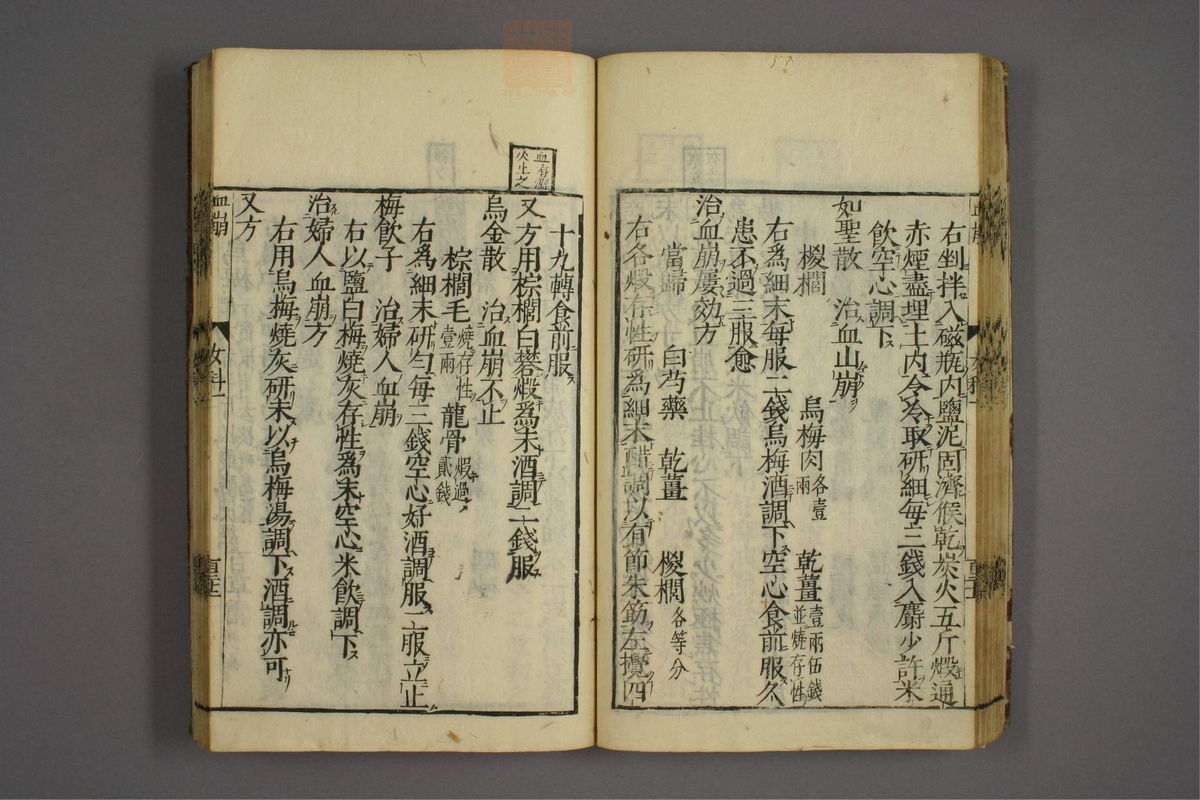 右剉拌入磁瓶内鹽泥固濟候乾炭火五斤煅通
赤煙盡埋土内令冷取研細每三錢入麝少許米
飲空心調下
如聖散　治血山崩
椶櫚　烏梅肉各壹兩　乾薑壹兩伍錢並燒存性
右爲細末每服二錢烏梅酒調下空心食前服久
患不過三服愈
治血崩屢効方
當歸　白芍藥　乾薑　椶櫚各等分
右各煅存性研爲細末醋調以有節朱筯左攪四
十九轉食前服
又方用棕櫚白礬煅爲末酒調二錢服
烏金散　治血崩不止
棕櫚毛燒存性壹兩　龍骨煅過貳錢
右爲細末研勻每三錢空心好酒調服一服立止
梅飲子　治婦人血崩
右以鹽白梅燒灰存性爲末空心米飲調下
治婦人血崩方
右用烏梅燒灰研末以烏梅湯調下酒調亦可
又方
血崩
女科一